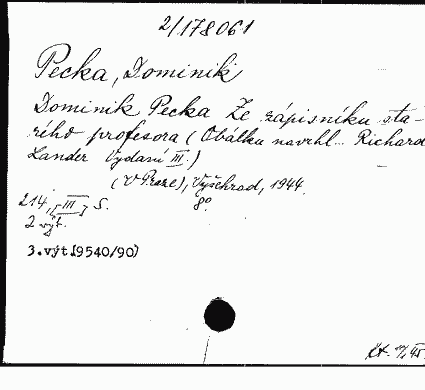 2/178061
Pecka, Dominik
Dominik Pecka Ze zápisníku sta-
rého profesora (Obálku navrhl... Richard
Lander Vydání III.)
(V Praze), Vyšehrad, 1944.
214, [III] S. 8°
2 výt.
3.výt.(9540/90)